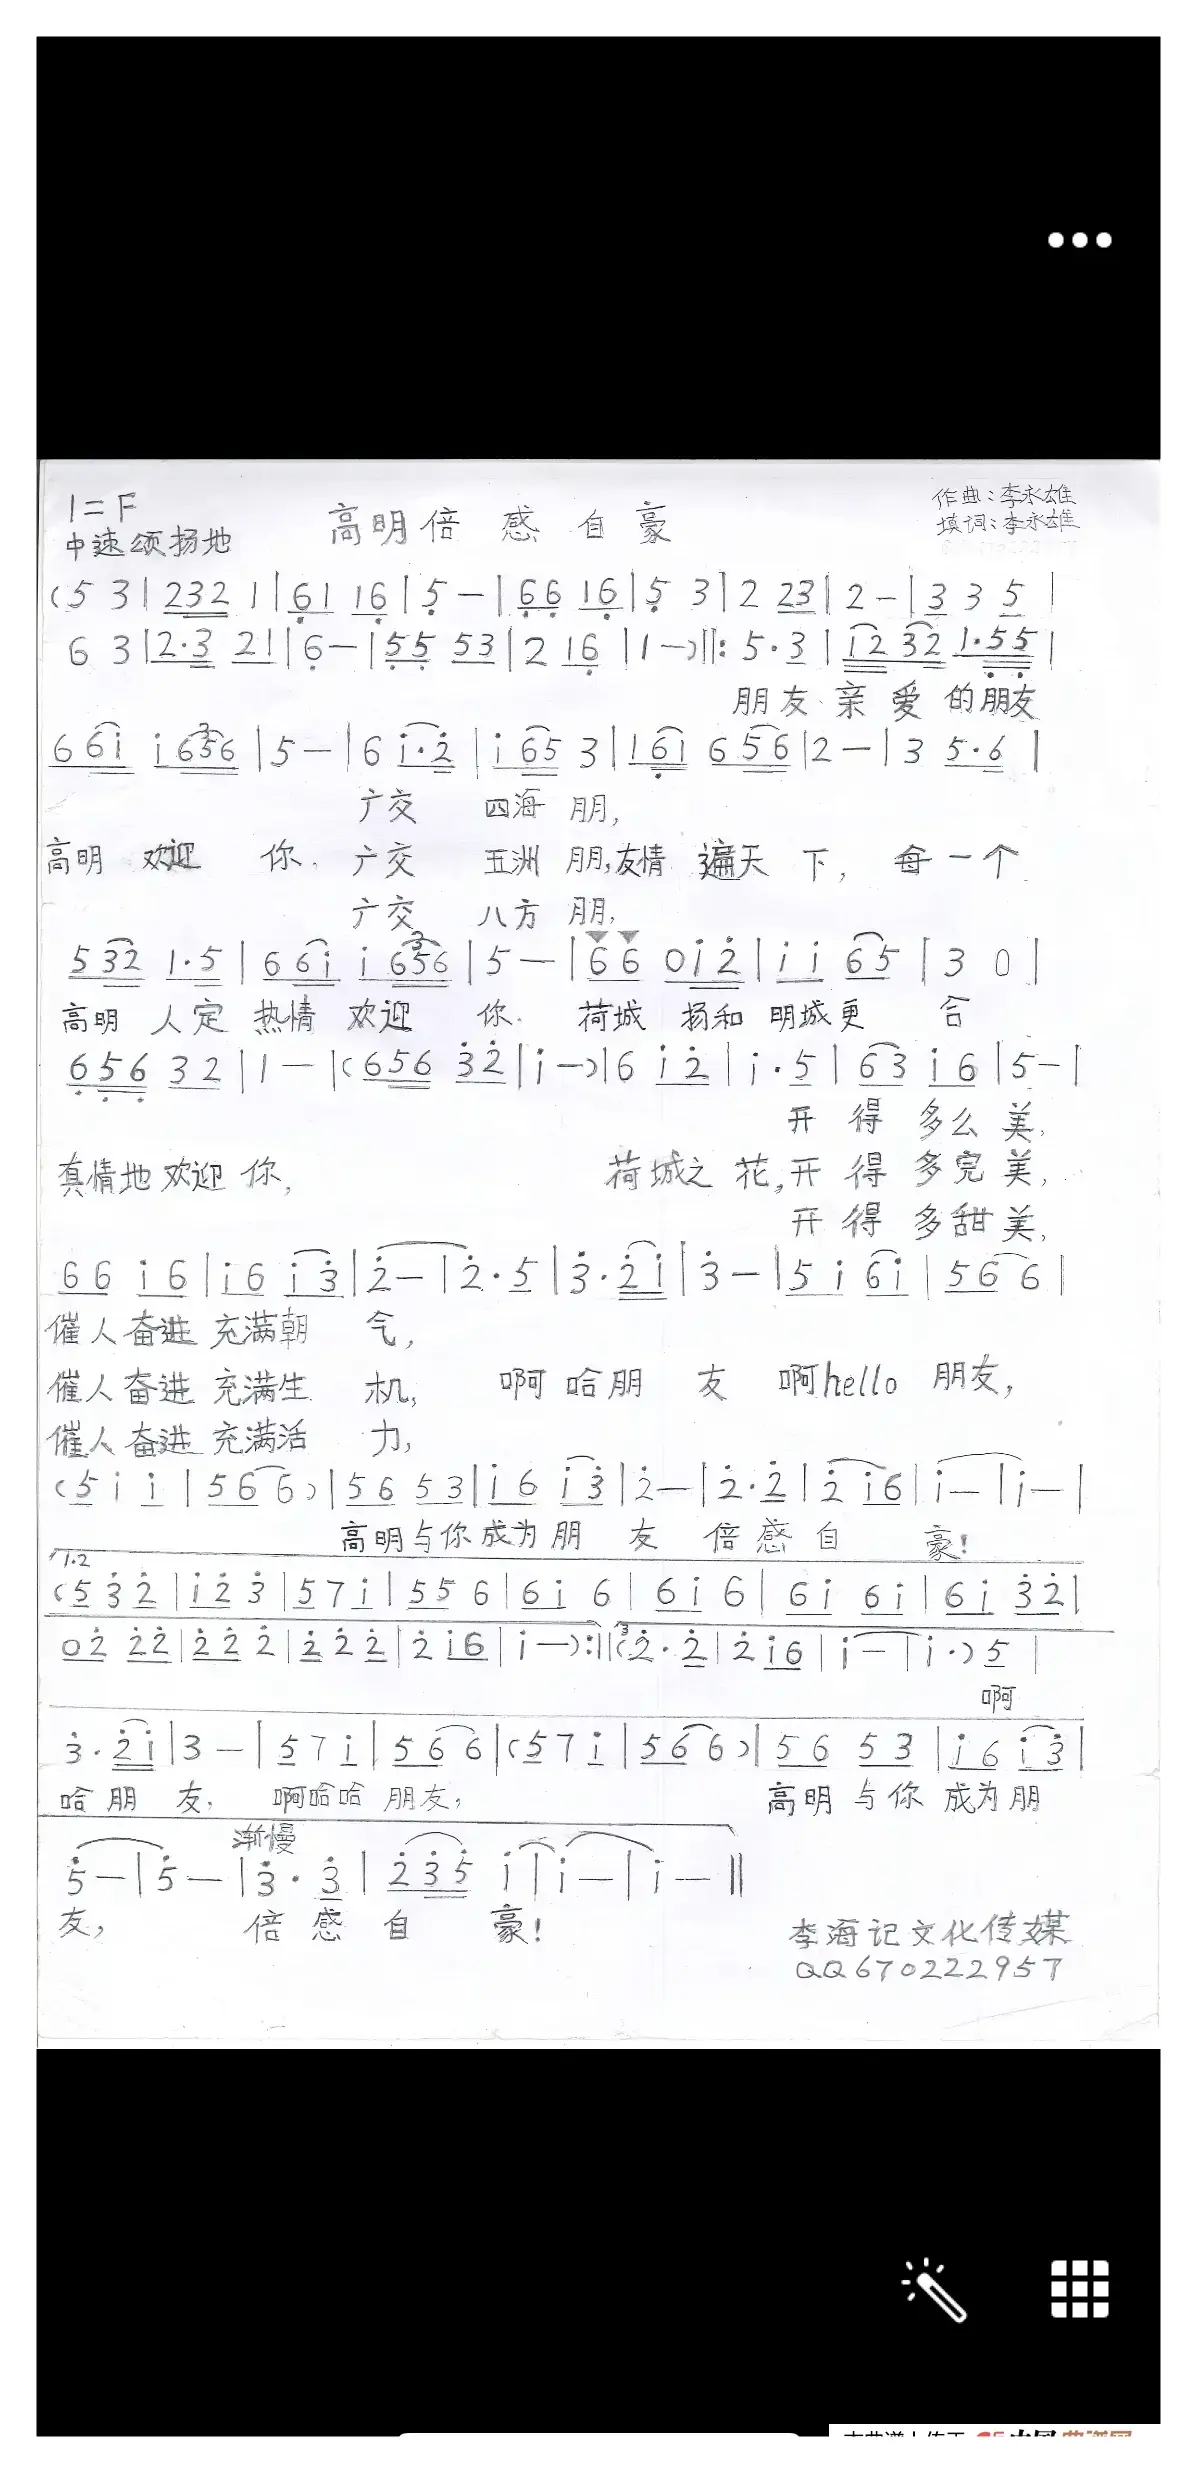 1=F
高明倍感自豪
作曲:李永雄
中速颂扬地
填词:李永雄
(5 3|232 1|61 16|5 —|66 16|5 3|2 23|2 —|3 3 5|
6 3|2·3 21|6 —|55 53|2 16|1 —)‖: 5·3|i2 32 1·55|
朋友 亲爱的朋友
6 6i i 656|5 —|6 i·2|i 65 3|1 6i 6 56|2 —|3 5·6|
广交 四海 朋,
高明 欢迎 你. 广交 五洲 朋,友情 遍天 下, 每一个
广交 八方 朋,
5 32 1·5|6 6i i 656|5 —|6 6 0i2|i i 65|3 0|
高明 人定 热情 欢迎 你. 荷城 扬和 明城更 合
656 32|1 —|(656 32|i —)|6 i2|i·5|63 i6|5 —|
开得 多么 美,
真情地欢迎你, 荷城之花,开得 多完美,
开得 多甜美,
66 i6|i6 i3|2 —|2·5|3·2i|3 —|5 i 6i|56 6|
催人奋进 充满朝 气,
催人奋进 充满生 机, 啊哈朋 友 啊hello 朋友,
催人奋进 充满活 力,
(5 i i|56 6)|56 53|i6 i3|2 —|2·2|2 i6|i —|i —|
高明与你成为朋 友 倍感自 豪!
1.2
(5 3 2|i2 3|57 i|55 6|6i 6|6i 6|6i 6i|6i 32|
02 22|22 2|2 2 2|2 i6|i —):‖3(2·2|2 i6|i —|i·)5|
啊
3·2i|3 —|5 7 i|56 6|(5 7 i|56 6)|56 53|i6 i3|
哈朋 友, 啊哈哈 朋友, 高明 与你 成为朋
渐慢
5 —|5 —|3·3|2 35 i|i —|i —‖
友, 倍感 自 豪!
李海记文化传媒
QQ670222957